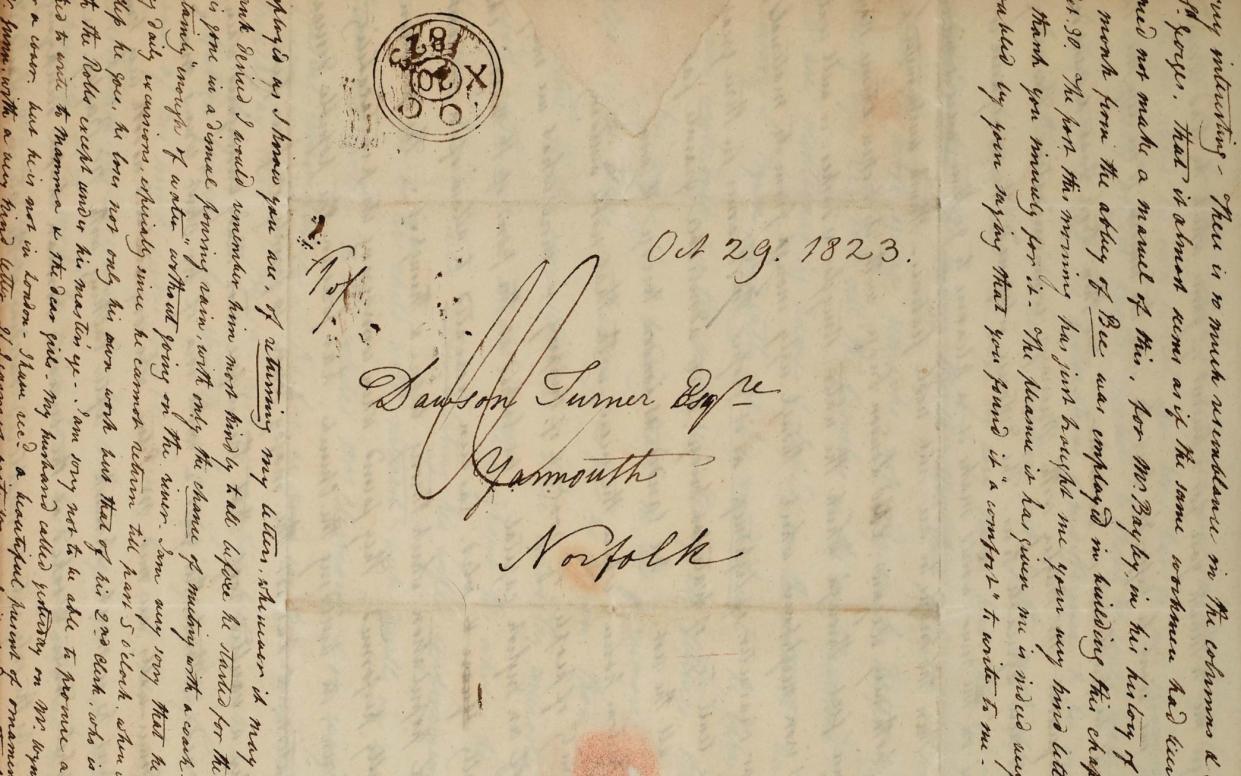 very interesting - There is so much resemblance in the columns &
gorges, that it almost seems as if the same workmen had been
need not make a marvel of this, for Mr Bayley, in his history of
monk from the abbey of Bec was employed in building this chap
30. The post this morning has just brought me your very kind lett
thank you sincerely for it - The pleasure it has given me is indeed
by your saying that you found it "a comfort" to write to me -
Oct 29. 1823.
Dawson Turner Esqre
Yarmouth
Norfolk
OC
X
1823
as I know you are, of returning my letters whenever it may
I would remember him most kindly to all before he started for the
is gone in a dismal pouring rain, with only the chance of meeting with a coach
"enough of water" without going on the river. I am very sorry that he
daily excursions, especially since he cannot return till past 5 o'clock, when
he goes, he does not only his own work but that of his 2nd Clerk, who is
the Rolls except under his master's eye - I am sorry not to be able to procure a
to write to Mamma & the dear girls. My husband called yesterday on Mr. Wyn
a cover, but he is not in London - I have rec'd a beautiful present of ornamen
with a very kind letter